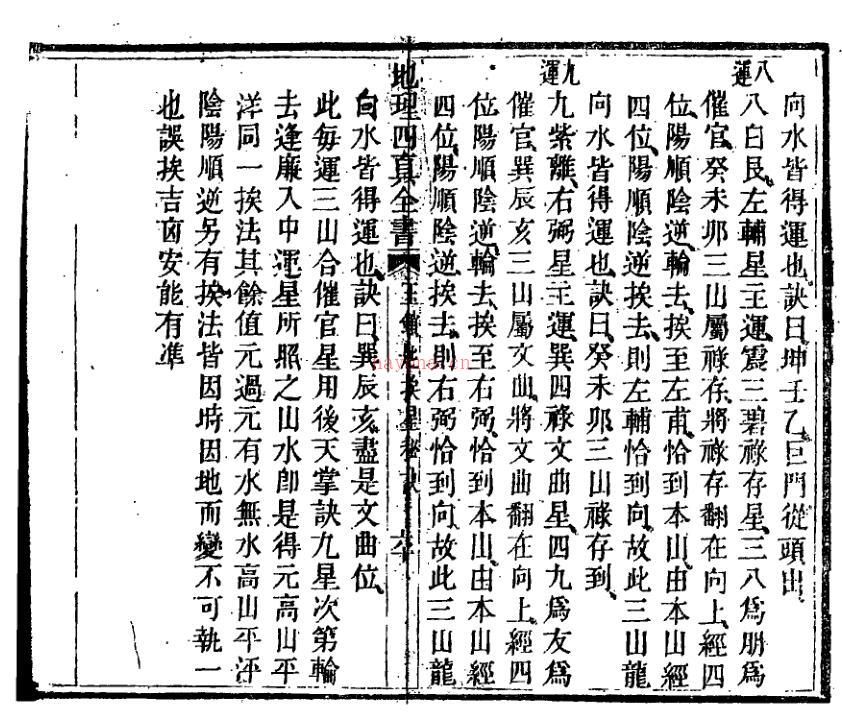 向水皆得運也訣曰坤壬乙巨門從頭出
八運
八白艮左輔星主運震三碧祿存星三八為朋為
催官癸未卯三山屬祿存將祿存翻在向上經四
位陽順陰逆輪去挨至左甫恰到本山由本山經
四位陽順陰逆挨去則左輔恰到向故此三山龍
向水皆得運也訣曰癸未卯三山祿存到
九運
九紫離右弼星主運巽四祿文曲星四九為友為
催官巽辰亥三山屬文曲將文曲翻在向上經四
位陽順陰逆輪去挨至右弼恰到本山由本山經
四位陽順陰逆挨去則右弼恰到向故此三山龍
地理四真全書
挨星秘訣
六十
向水皆得運也訣曰巽辰亥盡是文曲位
此每運三山合催官星用後天掌訣九星次第輪
去逢廉入中運星所照之山水即是得元高山平
洋同一挨法其餘值元過元有水無水高山平洋
陰陽順逆另有挨法皆因時因地而變不可執一
也誤挨吉凶安能有準